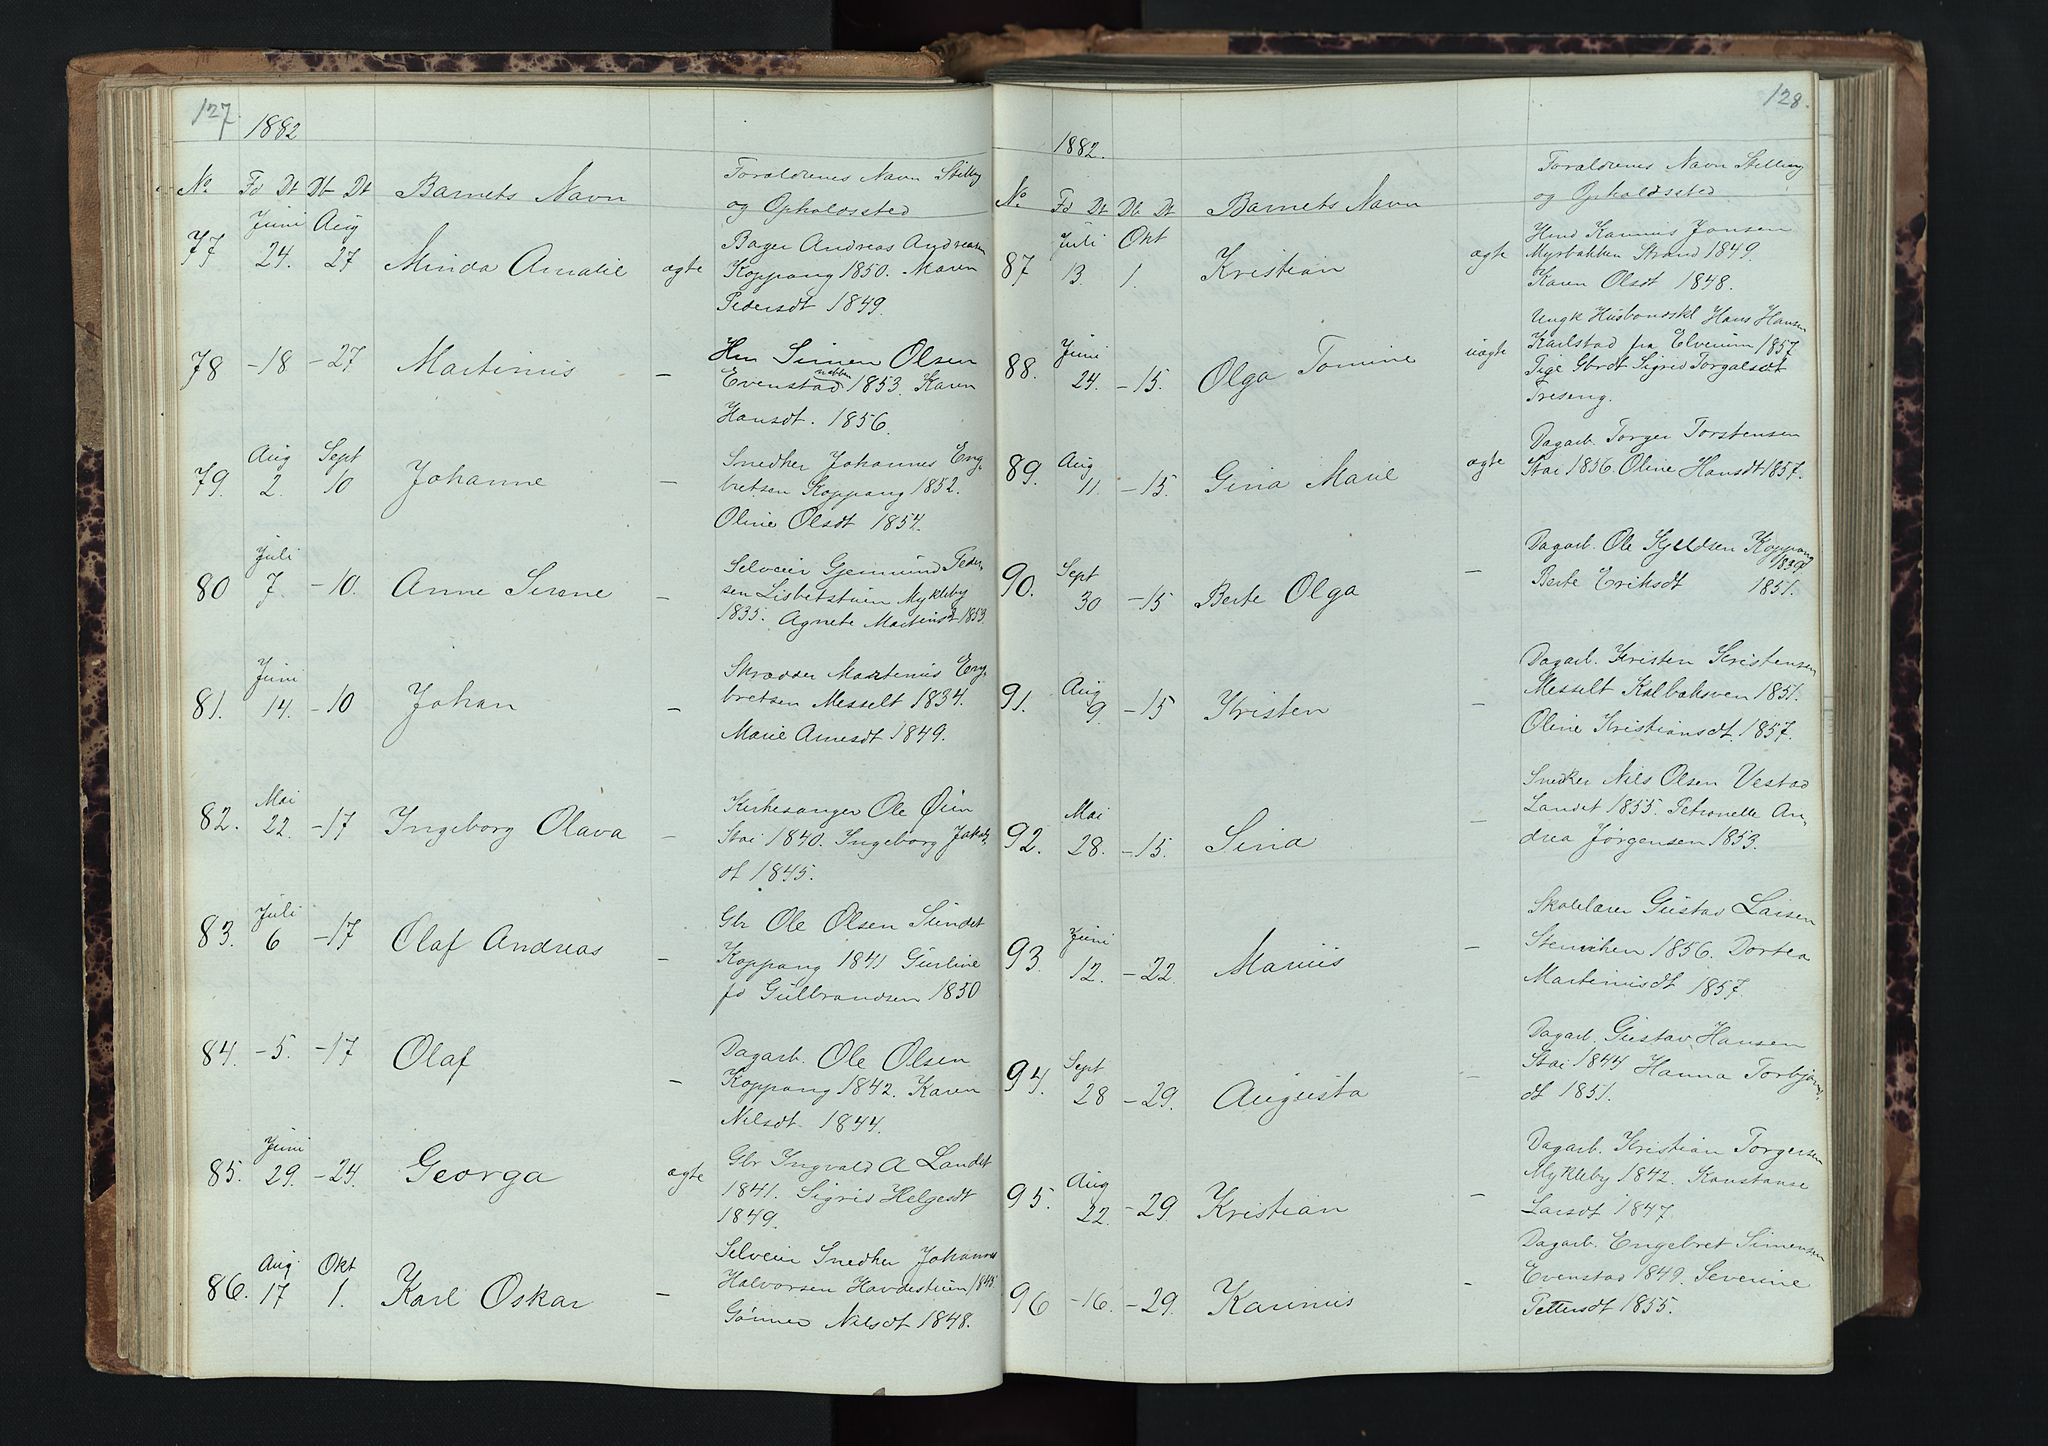 127
1882
No Fd Dt Db Dt Barnets Navn
Forældrenes Navn Stilling
og Opholdssted
Juni Aug
77 24. 27 Minda Amalie ægte
Bager Andreas Andreasen
Koppang 1850. Maren
Pedersdt 1849.
78 -18 -27 Martinus -
Hm Simen Olsen
Evenstad nabben 1853. Karen
Hansdt. 1856.
Aug Sept
79. 2. 10 Johanne -
Snedker Johannes Eng-
bretsen Koppang 1852.
Oline Olsdt 1854.
Juli
80 7. -10. Anne Sirene -
Selveier Gjemund Peder-
sen Lisbetstuen Mykleby
1835. Agnete Martinsdt 1853.
Juni
81. 14. -10 Johan -
Skrædder Martinus Eng-
bretsen Messelt 1834.
Marie Arnesdt 1849.
Mai
82. 22. -17 Ingeborg Olava -
Kirkesanger Ole Øien
Stai 1840. Ingeborg Jakobs-
dt 1845.
Juli
83. 6 -17 Olaf Andreas -
Gbr Ole Olsen Sundet
Koppang 1841 Gurline
fd Gulbrandsen 1850
84. -5. -17 Olaf -
Dagarb. Ole Olsen
Koppang 1842. Karen
Nilsdt 1844.
Juni
85. 29. -24. Georga ægte
Gbr Ingvald A Landet
1841. Sigrid Helgesdt
1849.
Aug. Okt
86. 17 1. Karl Oskar -
Selveier Snedker Johannes
Halvorsen Havdestuen 1845
Gønner Nilsdt 1848.
128.
1882.
No Fd Dt Db Dt Barnets Navn
Forældrenes Navn Stilling
og Opholdssted
Juli Okt
87 13. 1. Kristian ægte
Hmd Karinus Jonsen
Myrbakken Strand 1849.
Karen Olsdt 1848.
Juni
88. 24. -15. Olga Tomine uægte
Ungk Husbondskl Hans Hansen
Karlstad fra Elverum 1857
Pige Gbrdt Sigrid Torgalsdt
Treseng.
Aug
89. 11. -15. Gina Marie ægte
Dagarb. Torger Torstensen
Stai 1856. Oline Hansdt 1857.
Sept
90. 30 -15 Berte Olga -
Dagarb. Ole Kjeldsen Koppang
1839
Berte Eriksdt 1851.
Aug
91. 9. -15 Kristen -
Dagarb. Kristen Kristensen
Messelt Kalbæksven 1851.
Oline Kristiansdt. 1857.
Mai
92. 28. -15. Sina -
Snedker Nils Olsen Vestad
Landet 1855. Petronelle An-
drea Jørgensen 1853.
Juni
93. 12. -22 Marius -
Skolelærer Gustav Larsen
Stenviken 1856. Dortea
Martinusdt 1857.
Sept
94. 28 -29. Augusta -
Dagarb. Gustav Hansen
Stai 1844 Hanna Torbjørns-
dt 1851.
Aug
95. 22. -29. Kristian -
Dagarb. Kristian Torgersen
Mykleby 1842. Konstanse
Larsdt 1847.
96 -16. -29. Karinus -
Dagarb. Engebret Simensen
Evenstad 1849. Severine
Pettersdt 1855.